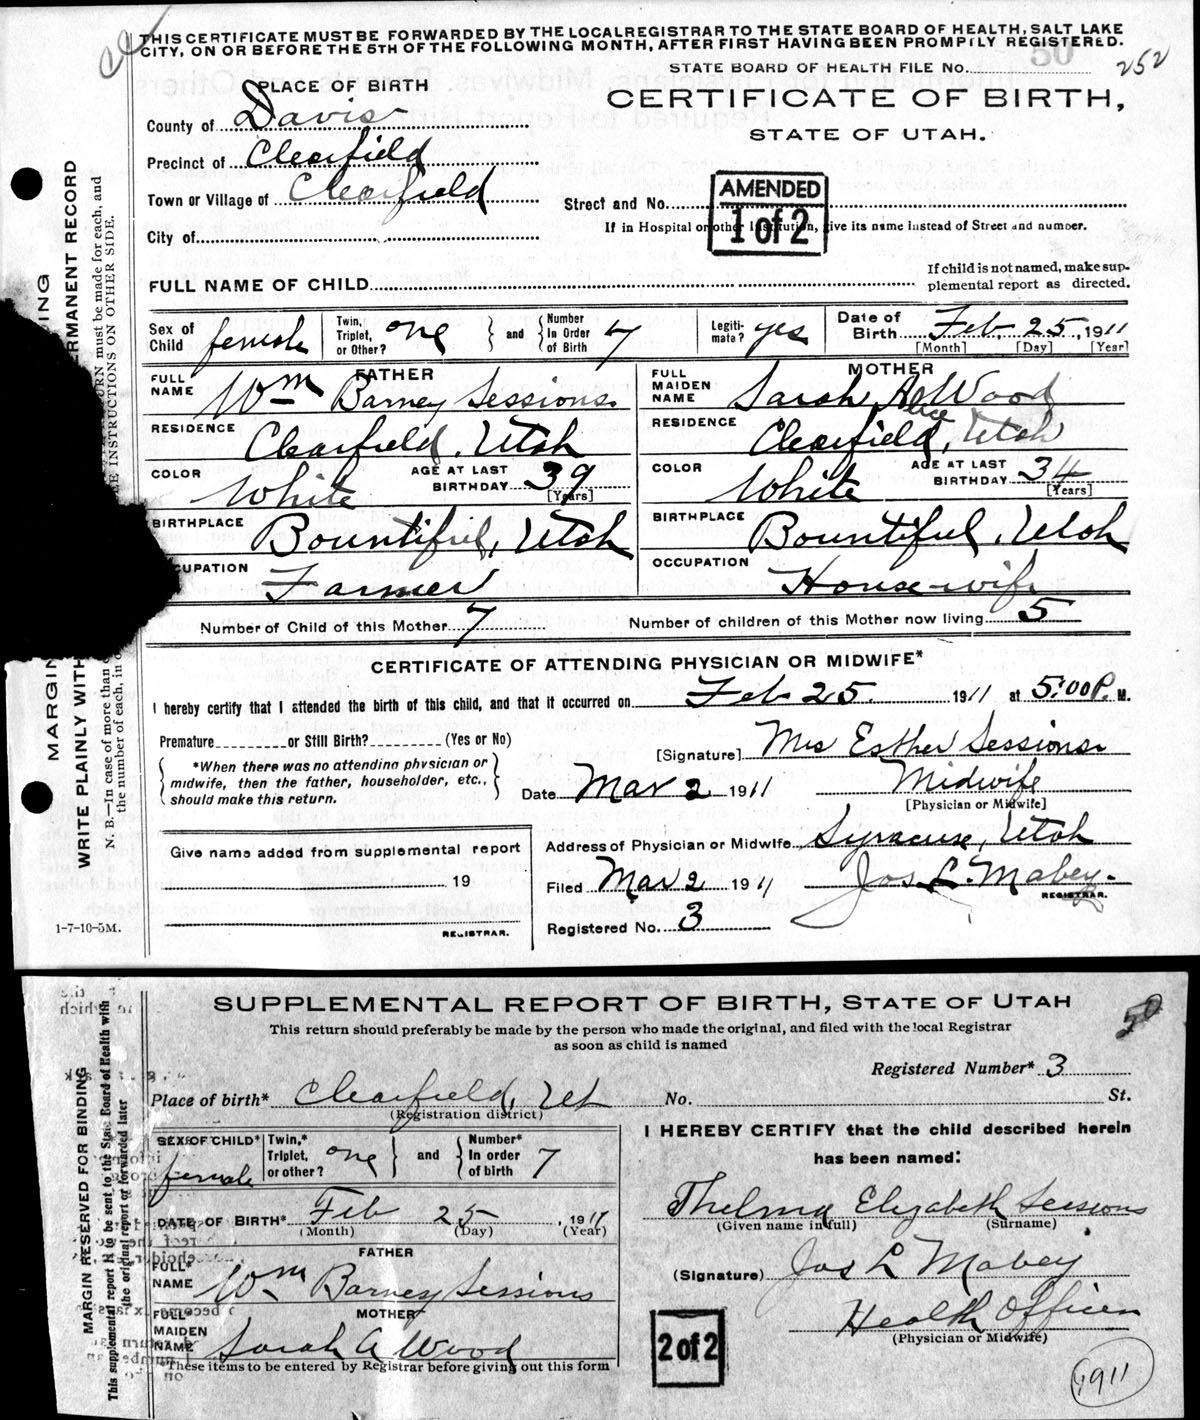 THIS CERTIFICATE MUST BE FORWARDED BY THE LOCAL REGISTRAR TO THE STATE BOARD OF HEALTH, SALT LAKE
CITY, ON OR BEFORE THE 5TH OF THE FOLLOWING MONTH, AFTER FIRST HAVING BEEN PROMPTLY REGISTERED.
STATE BOARD OF HEALTH FILE No. 50 252
PLACE OF BIRTH
CERTIFICATE OF BIRTH,
STATE OF UTAH.
County of Davis
Precinct of Clearfield
Town or Village of Clearfield
City of
AMENDED
1 of 2
Street and No.
If in Hospital or other Institution, give its name instead of Street and number.
FULL NAME OF CHILD
If child is not named, make sup-
plemental report as directed.
Sex of Child female
Twin, Triplet, or Other? one
and
Number In Order of Birth 7
Legiti- mate? yes
Date of Birth Feb. 25, 1911
[Month] [Day] [Year]
FATHER
FULL NAME Wm Barney Sessions.
RESIDENCE Clearfield, Utah
COLOR White
AGE AT LAST BIRTHDAY 39
[Years]
BIRTHPLACE Bountiful, Utah
CUPATION Farmer
MOTHER
FULL MAIDEN NAME Sarah A Wood
Alice
RESIDENCE Clearfield, Utah
COLOR White
AGE AT LAST BIRTHDAY 34
[Years]
BIRTHPLACE Bountiful, Utah
OCCUPATION House-wife
Number of Child of this Mother 7
Number of children of this Mother now living 5
CERTIFICATE OF ATTENDING PHYSICIAN OR MIDWIFE*
I hereby certify that I attended the birth of this child, and that it occurred on Feb 25. 1911 at 5:00 P. M.
Premature or Still Birth? (Yes or No)
*When there was no attending physician or
midwife, then the father, householder, etc.,
should make this return.
[Signature] Mrs Esther Sessions.
Date Mar 2 1911
Midwife
[Physician or Midwife]
Give name added from supplemental report
19
REGISTRAR.
Address of Physician or Midwife Syracuse, Utah
Filed Mar 2 1911
Jos L. Mabey.
REGISTRAR.
Registered No. 3
1-7-10-5M.
PERMANENT RECORD
MARGIN
WRITE PLAINLY WITH
N. B.—In case of more than
the number of each, in o
RN must be made for each, and
E INSTRUCTIONS ON OTHER SIDE.
SUPPLEMENTAL REPORT OF BIRTH, STATE OF UTAH
This return should preferably be made by the person who made the original, and filed with the local Registrar
as soon as child is named
50
Registered Number* 3
Place of birth* Clearfield, Ut No. St.
(Registration district)
SEX OF CHILD* female
Twin,* Triplet, or other? one
and
Number* In order of birth 7
DATE OF BIRTH* Feb 25, 1911
(Month) (Day) (Year)
FATHER
FULL* NAME Wm Barney Sessions
MOTHER
FULL* MAIDEN NAME Sarah A Wood
These items to be entered by Registrar before giving out this form
I HEREBY CERTIFY that the child described herein
has been named:
Thelma Elizabeth Sessions
(Given name in full) (Surname)
(Signature) Jos L Mabey
Health Officer
(Physician or Midwife)
2 of 2
1911
MARGIN RESERVED FOR BINDING
This supplemental report is to be sent to the State Board of Health with
the original report or forwarded later